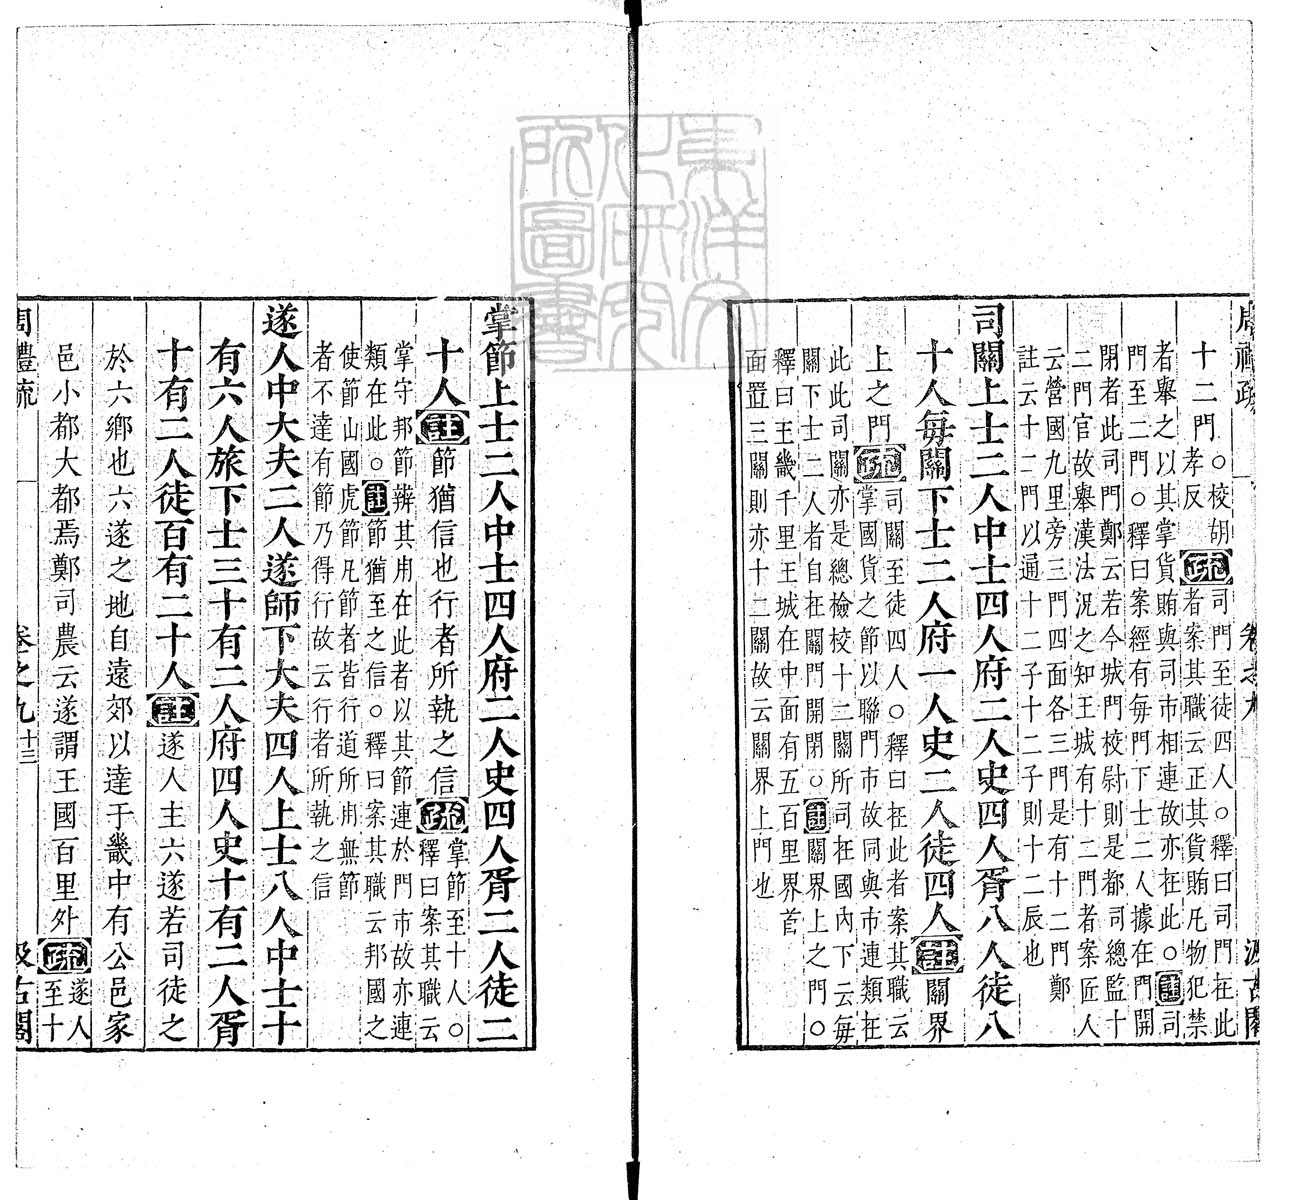 周禮疏
卷之九
汲古閣
十二門○校胡孝反
疏
司門至徒四人○釋曰司門在此
者案其職云正其貨賄凡物犯禁
者舉之以其掌貨賄與司市相連故亦在此○註司
門至二門○釋曰案經有每門下士二人據在門開
閉者此司門鄭云若今城門校尉則是都司總監十
二門官故舉漢法況之知王城有十二門者案匠人
云營國九里旁三門四面各三門是有十二門鄭
註云十二門以通十二子十二子則十二辰也
司關上士二人中士四人府二人史四人胥八人徒八
十人每關下士二人府一人史二人徒四人註關界
上之門
疏
司關至徒四人○釋曰在此者案其職云
掌國貨之節以聯門市故同與市連類在
此此司關亦是總檢校十二關所司在國內下云每
關下士二人者自在關門開閉○註關界上之門○
釋曰王畿千里王城在中面有五百里界首
面置三關則亦十二關故云關界上門也
掌節上士二人中士四人府二人史四人胥二人徒二
十人註節猶信也行者所執之信
疏
掌節至十人○
釋曰案其職云
掌守邦節辨其用在此者以其節連於門市故亦連
類在此○註節猶至之信○釋曰案其職云邦國之
使節山國虎節凡節者皆行道所用無節
者不達有節乃得行故云行者所執之信
遂人中大夫二人遂師下大夫四人上士八人中士十
有六人旅下士三十有二人府四人史十有二人胥
十有二人徒百有二十人註遂人主六遂若司徒之
於六鄉也六遂之地自遠郊以達于畿中有公邑家
邑小都大都焉鄭司農云遂謂王國百里外
疏
遂人
至十
周禮疏
卷之九
十三
汲古閣
東洋文
化研究
所圖書